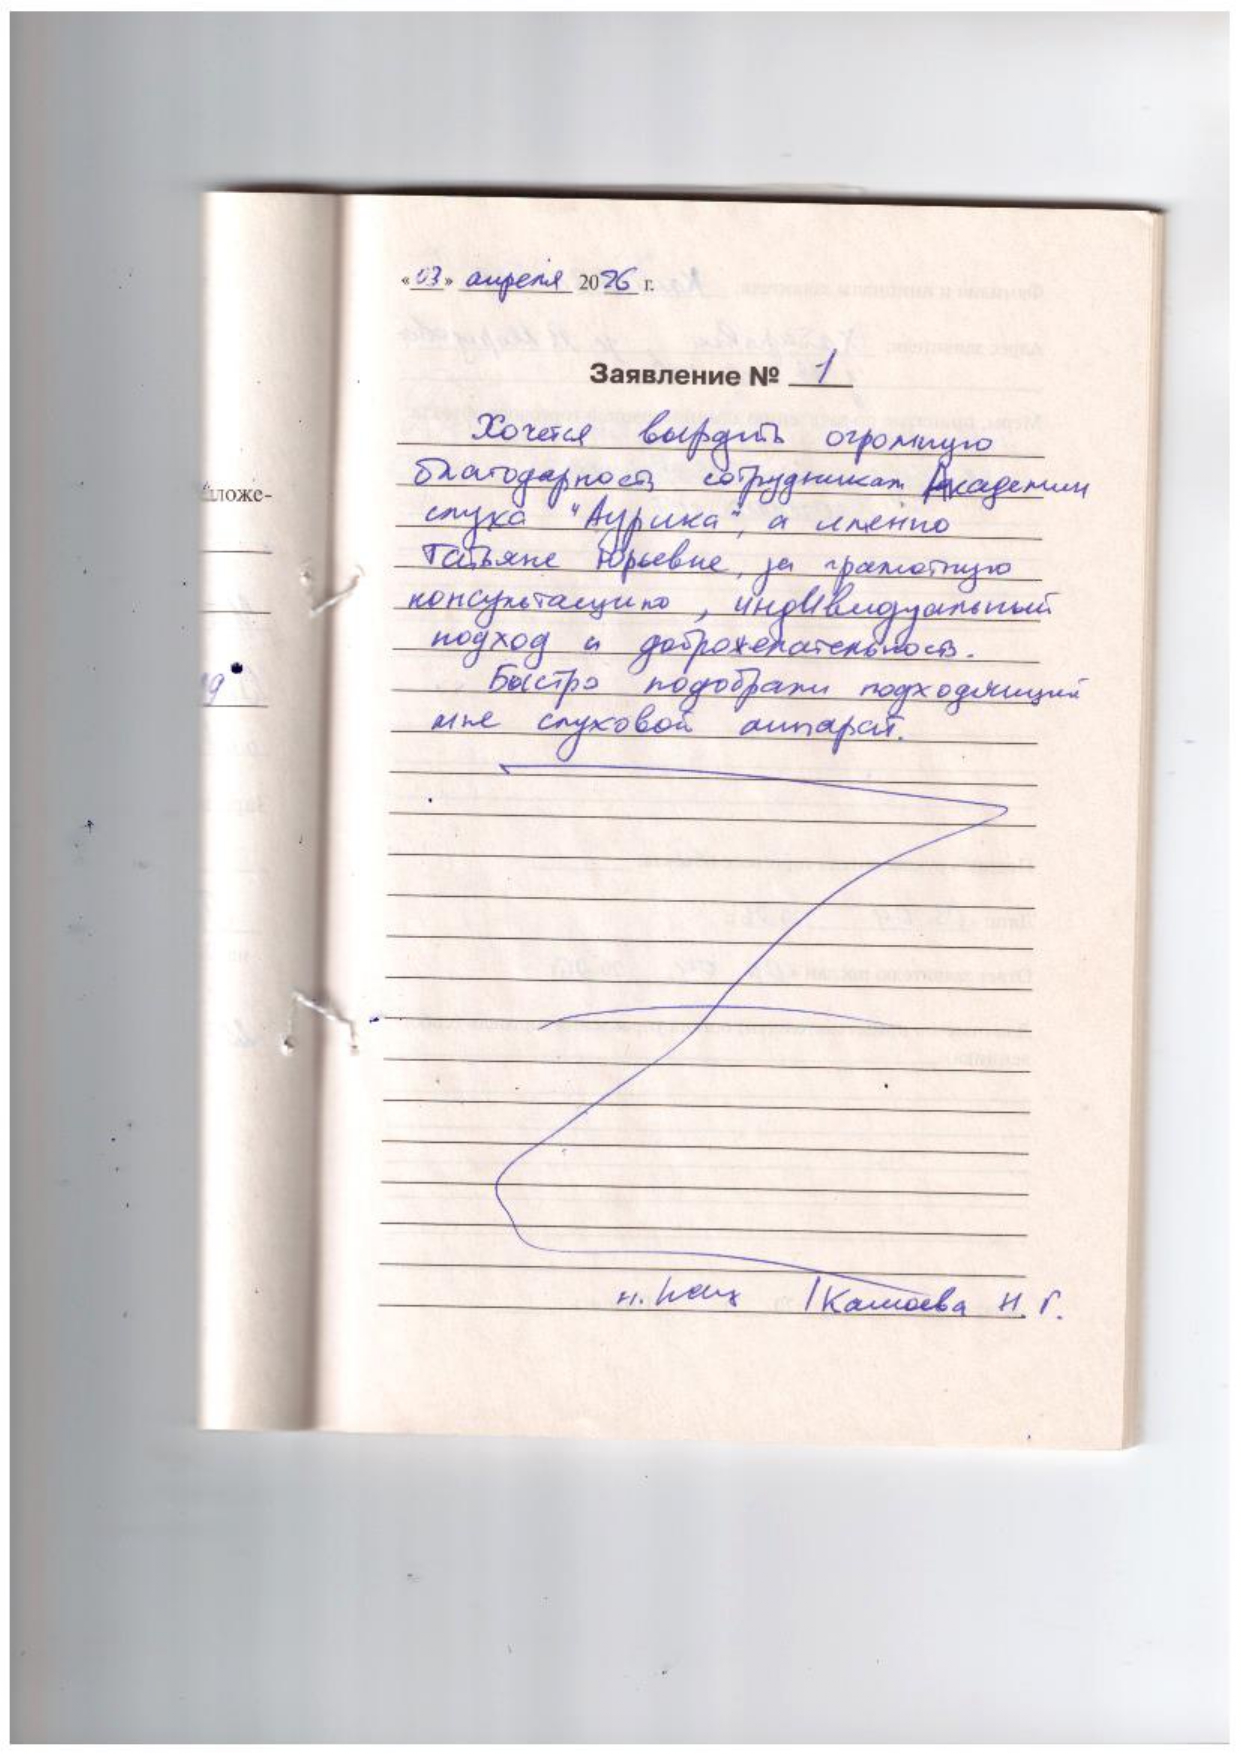 «03» апреля 2026 г.
Заявление № 1
Хочется выразить огромную
благодарность сотрудникам Академии
слуха "Аурика", а именно
Татьяне Юрьевне, за грамотную
консультацию, индивидуальный
подход и доброжелательность.
Быстро подобрали подходящий
мне слуховой аппарат.
ложе-
Н. Г.